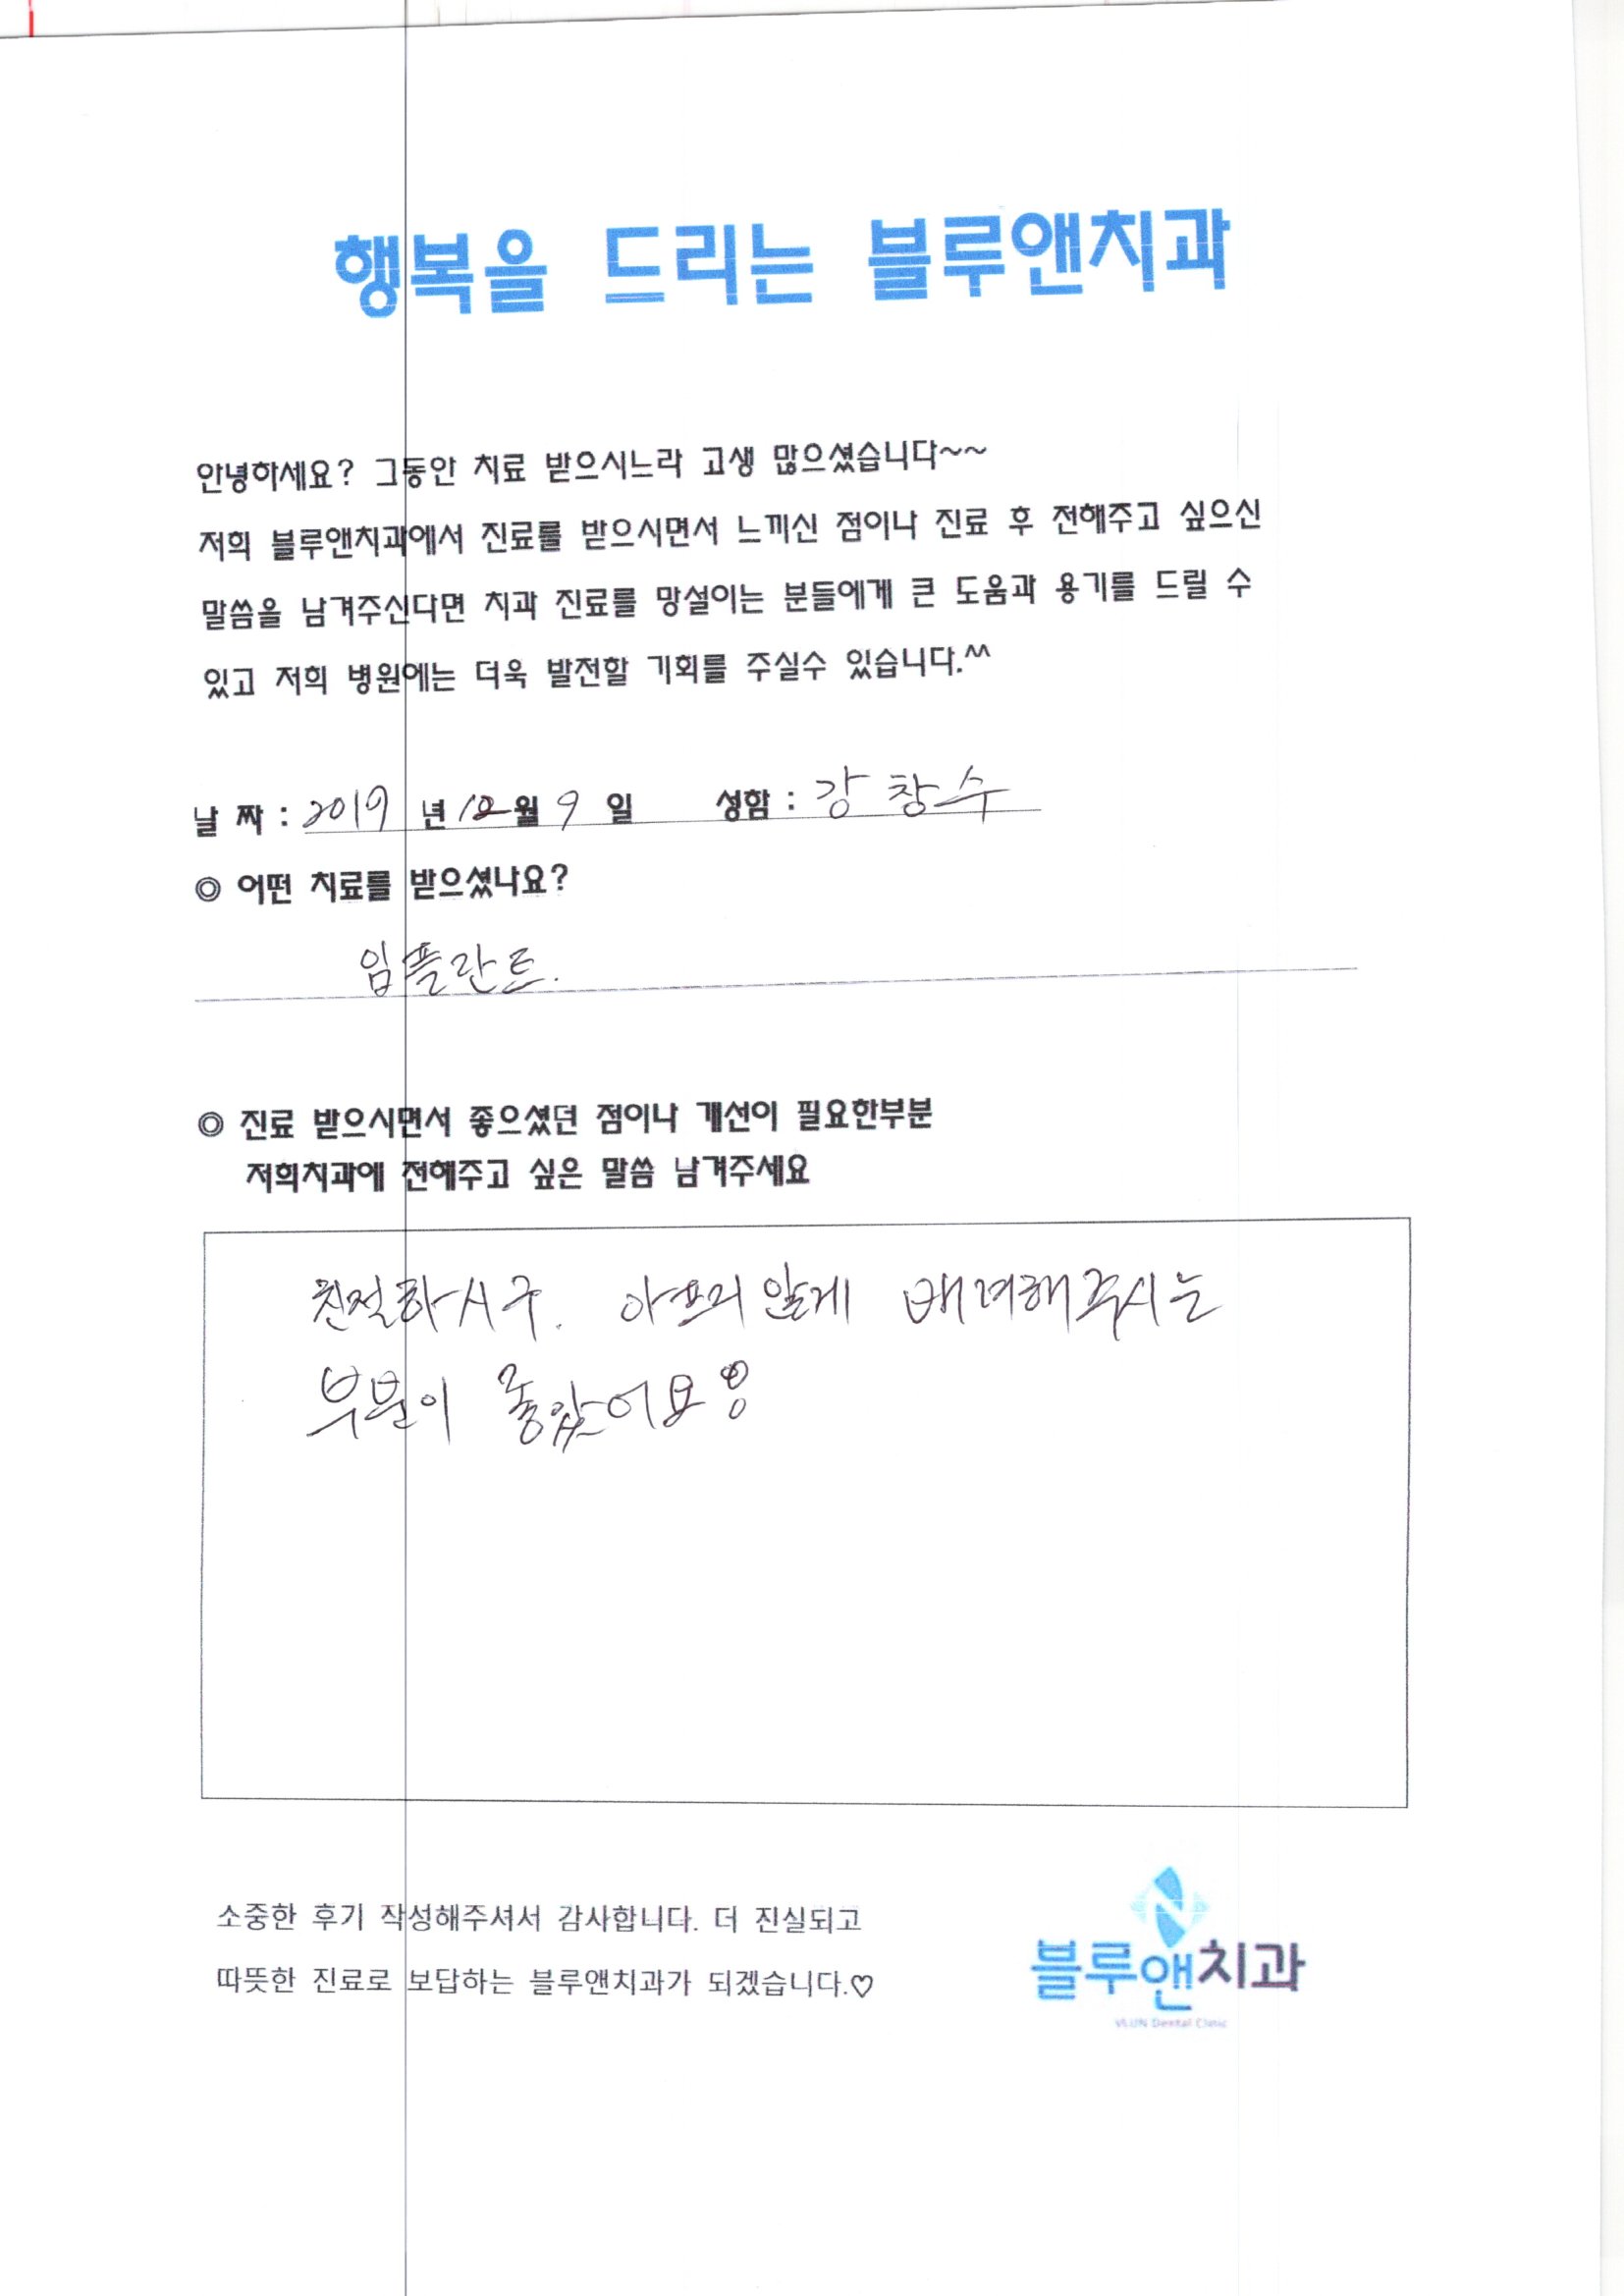 행복을 드리는 블루앤치과
안녕하세요? 그동안 치료 받으시느라 고생 많으셨습니다~~
저희 블루앤치과에서 진료를 받으시면서 느끼신 점이나 진료 후 전해주고 싶으신
말씀을 남겨주신다면 치과 진료를 망설이는 분들에게 큰 도움과 용기를 드릴 수
있고 저희 병원에는 더욱 발전할 기회를 주실수 있습니다.^^
날 짜 : 2019 년 12월 9 일 성함 : 강창수
◎ 어떤 치료를 받으셨나요?
임플란트.
◎ 진료 받으시면서 좋으셨던 점이나 개선이 필요한부분
저희치과에 전해주고 싶은 말씀 남겨주세요
친절하시구. 아프지 않게 배려해주시는
부분이 좋았어요!
소중한 후기 작성해주셔서 감사합니다. 더 진실되고
따뜻한 진료로 보답하는 블루앤치과가 되겠습니다.♡
블루앤치과
VLUN Dental Clinic